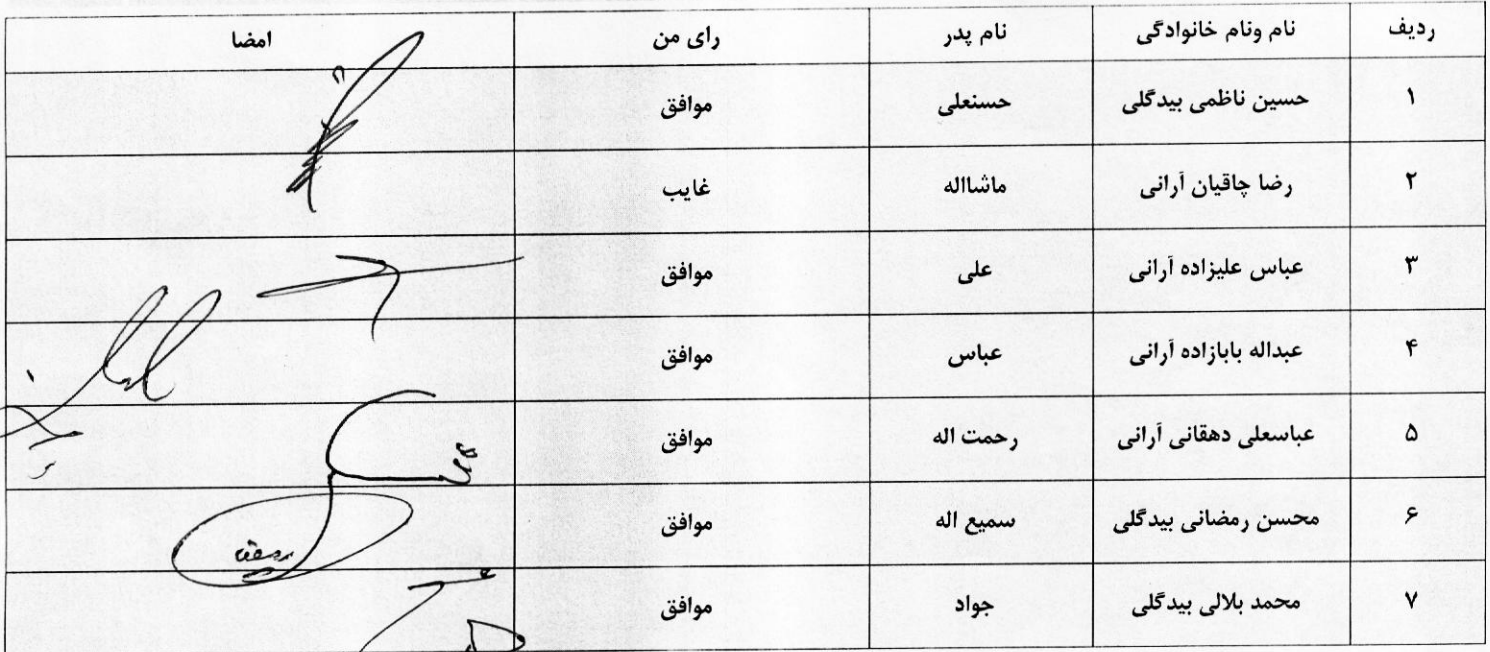 ردیف نام ونام خانوادگی نام پدر رای من امضا
۱ حسین ناظمی بیدگلی حسنعلی موافق
۲ رضا چاقیان آرانی ماشااله غایب
۳ عباس علیزاده آرانی علی موافق
۴ عبداله بابازاده آرانی عباس موافق
۵ عباسعلی دهقانی آرانی رحمت اله موافق
۶ محسن رمضانی بیدگلی سمیع اله موافق
۷ محمد بلالی بیدگلی جواد موافق